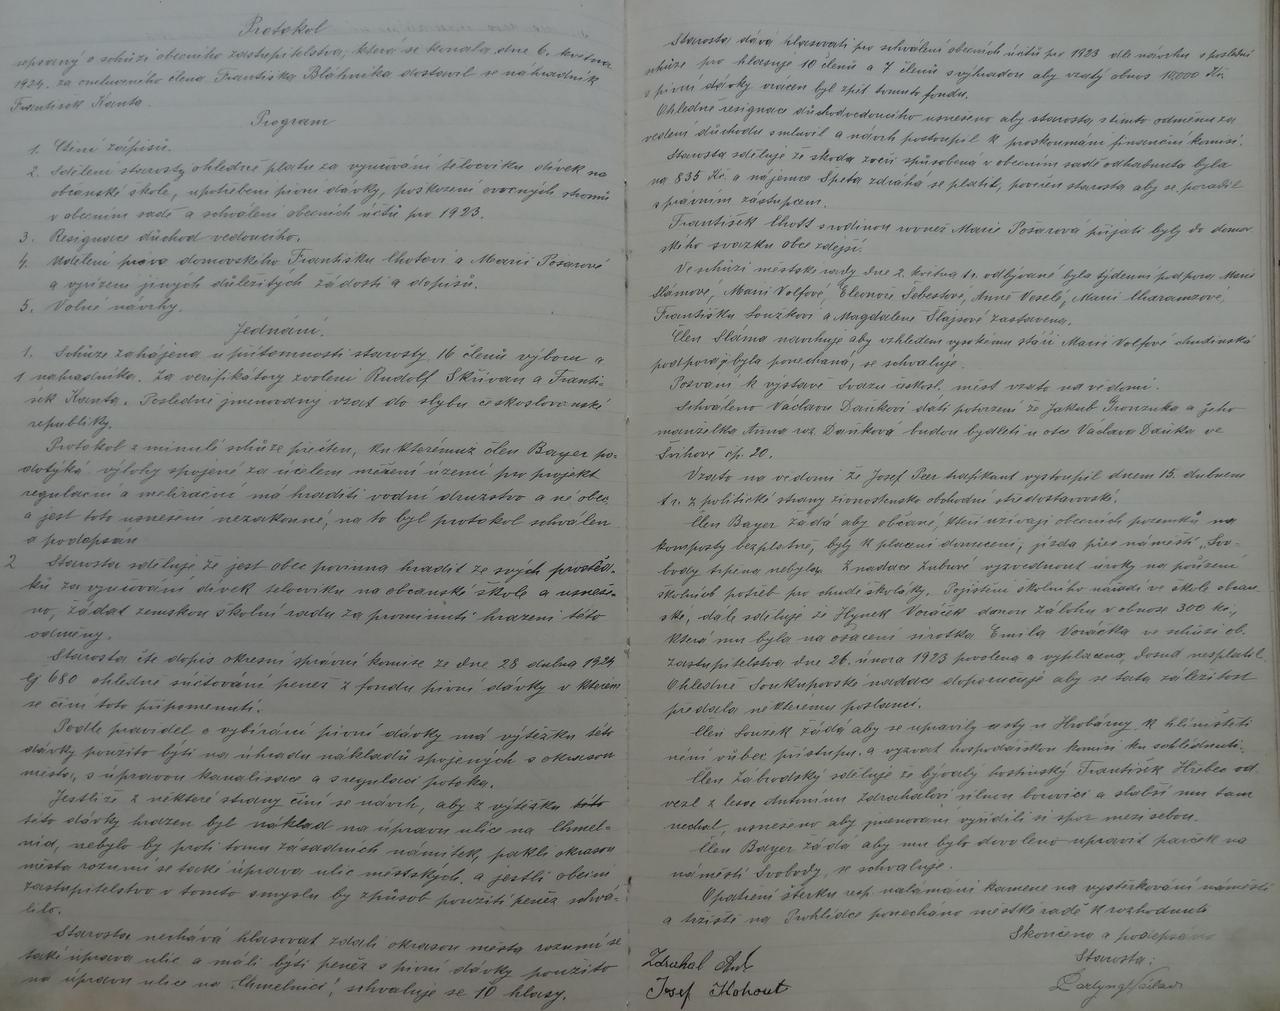 Protokol
sepsaný o schůzi obecního zastupitelstva, která se konala dne 6. května
1924. za omluveného člena Františka Bláhníka dostavil se náhradník
František Kanta.
Program
1. Čtení zápisů.
2. Sdělení starosty ohledně platu za vyučování tělocviku dívek na
občanské škole, upotřebení pivní dávky, poškození ovocných stromů
v obecním sadě a schválení obecních účtů pro 1923.
3. Resignace důchod vedoucího.
4. Udělení práva domovského Františku Lhotovi a Marii Posarové
a vyřízení jiných důležitých žádostí a dopisů.
5. Volné návrhy.
Jednání.
1. Schůze zahájena u přítomnosti starosty, 16 členů výboru a
1 náhradníka. Za verifikátory zvoleni Rudolf Skřivan a Franti-
šek Kanta. Posledně jmenovaný vzat do slibu československé
republiky.
Protokol z minulé schůze přečten, ku kterémuž člen Bayer po-
dotýká výlohy spojené za účelem měření území pro projekt
regulační a meliorační má hraditi vodní družstvo a ne obec
a jest toto usnešení nezákonné, na to byl protokol schválen
a podepsán
2 Starosta sděluje že jest obec povinna hradit ze svých prostřed-
ků za vyučování dívek tělocviku na občanské škole a usneše-
no, žádat zemskou školní radu za prominutí hrazení této
odměny.
Starosta čte dopis okresní správní komise ze dne 28 dubna 1924
čj 680 ohledně súčtování peněz z fondu pivní dávky v kterém
se činí toto připomenutí.
Podle pravidel o vybírání pivní dávky má výtěžku této
dávky použito býti na úhradu nákladů spojených s okrasou
města, s úpravou kanalisace a s regulací potoka.
Jestliže z některé strany činí se návrh, aby z výtěžku této
této dávky hrazen byl náklad na úpravu ulice na Chmel-
nici, nebylo by proti tomu zásadních námitek, pakli okrasou
města rozumí se také úprava ulic městských, a jestli obecní
zastupitelstvo v tomto smyslu by způsob použití peněz schvá-
lilo.
Starosta nechává hlasovat zdali okrasou města rozumí se
také úprava ulic a máli býti peněz z pivní dávky použito
na úpravu ulice na "Chmelnici", schvaluje se 10 hlasy.
Starosta dává hlasovati pro schválení obecních účtů pro 1923 dle návrhu z poslední
schůze pro hlasuje 10 členů a 7 členů s výhradou aby vzatý obnos 10,000 Kč
z pivní dávky vrácen byl zpět tomuto fondu.
Ohledně resignace důchodvedoucího usneseno aby starosta s tímto odměnu za
vedení důchodu smluvil a návrh postoupil k proskoumání finanční komisi.
Starosta sděluje že škoda zvěří způsobena v obecním sadě odhadnuta byla
na 835 Kč. a nájemce Speta zdráhá se platit, pověřen starosta aby se poradil
s právním zástupcem.
František Lhota s rodinou rovněž Marie Posarová přijati byly do domov-
ského svazku obce zdejší.
Ve schůzi městské rady dne 2. května t.r. odbývané byla týdenní podpora Marii
Slámové, Marii Volfové, Eleonoře Šebestové, Anně Veselé, Marii Charamzové,
Františku Součkovi a Magdaleně Šlajsové zastavena.
Člen Sláma navrhuje aby vzhledem vysokému stáří Marii Volfové chudinská
podpora byla ponechána, se schvaluje.
Pozvání k výstavě Svazu českosl. měst vzato na vědomí.
Schváleno Václavu Daňkovi dáti potvrzení že Jakub Gronzuka a jeho
manželka Anna roz. Daňková budou bydleti u otce Václava Daňka ve
Švihově čp. 20.
Vzato na vědomí že Josef Peer trafikant vystoupil dnem 15. dubnem
t.r. z politické strany živnostensko obchodní středostavovské.
Člen Bayer žádá aby občané, kteří užívají obecních pozemků na
komposty bezplatně, byly k placení donuceni, jízda přes náměstí "Svo-
body trpěna nebyla. Z nadace Zubrové vyzvednout úroky na pořízení
školních potřeb pro chudé školáky. Pojištění školního nářadí ve škole občan-
ské, dále sděluje že Hynek Voráček danou zálohu v obnose 300 Kč,
která mu byla na ošacení sirotka Emila Voráčka ve schůzi ob.
zastupitelstva dne 26. února 1923 povolena a vyplacena, dosud nesplatil.
Ohledně Soukupovské nadace doporučuje aby se tato záležitost
předala některému poslanci.
Člen Souček žádá aby se upravily cesty u Hrobárny, k hliništi
není vůbec přístupu, a vyzvat hospodářskou komisi ku sohlédnutí.
Člen Závodský sděluje že bývalý hostinský František Hřebec od-
vezl z lesa Antonínu Zdrahalovi silnou borovici a slabší mu tam
nechal, usneseno aby jmenovaní vyřídili si spor mezi sebou.
Člen Bayer žádá aby mu bylo dovoleno upravit páreček na
náměstí Svobody, se schvaluje.
Opatření štěrku resp. nalámání kamene na vyštěrkování náměstí
a tržiště na Prohlídce ponecháno městské radě k rozhodnutí
Skončeno a podepsáno
Starosta:
Zdrahal Ant.
Josef Kohout